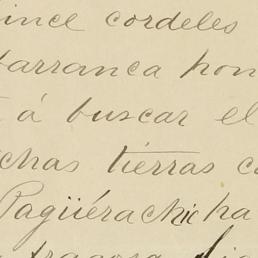 ince cordeles
barranca hon
á buscar el
chas tierras c
Pagüérachic ha
fragosa